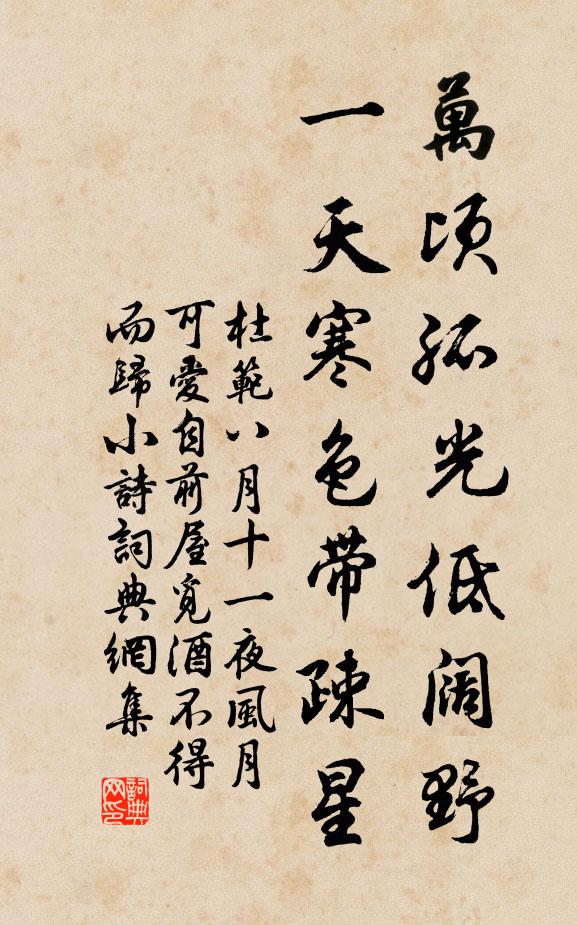 萬頃孤光低闊野
一天寒色帶疎星
杜範八月十一夜風月
可愛自前屋覓酒不得
而歸小詩詞典網集
詞典网印